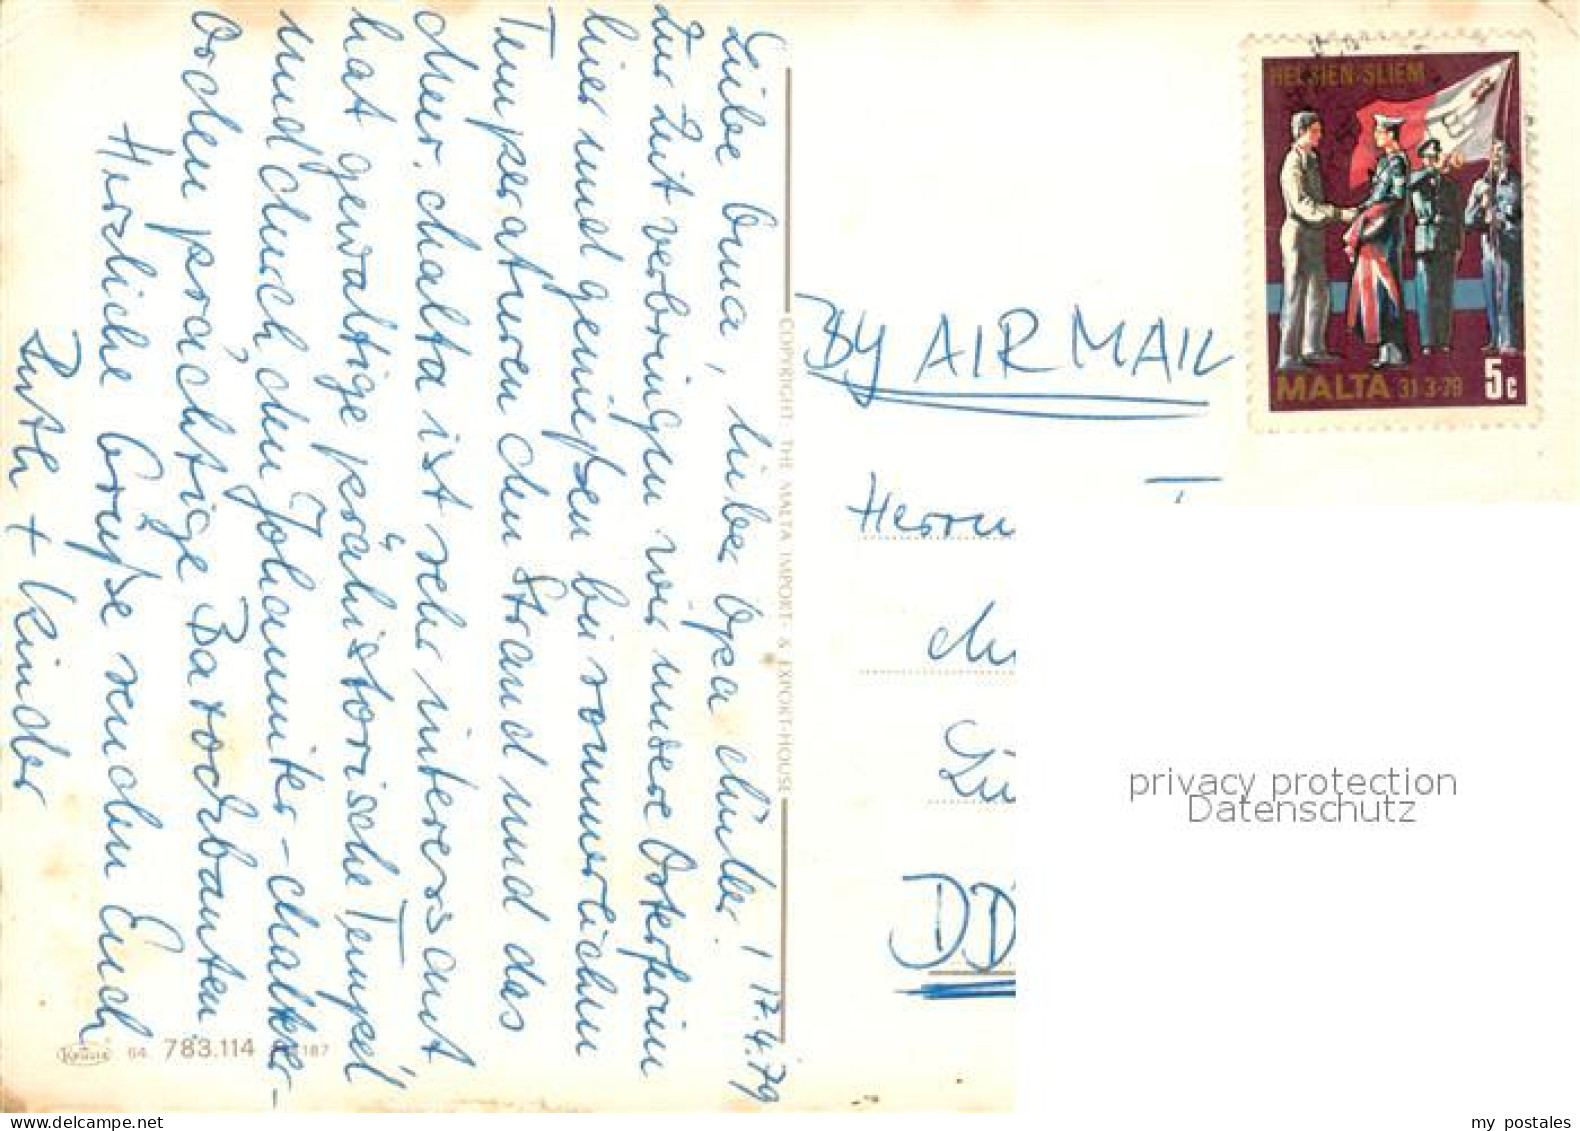 Liebe Oma, lieber Opa Müller! 17.4.79
Zur Zeit verbringen wir unsere Osterferien
hier und genießen bei sommerlichen
Temperaturen den Strand und das
Meer. Malta ist sehr interessant
hat gewaltige prähistorische Tempel
und durch den Johanniter-Malteser-
Orden prächtige Barockbauten
Herzliche Grüße senden Euch
Ruth + Kinder
COPYRIGHT. THE MALTA IMPORT- & EXPORT-HOUSE
Krüger 64 783.114 187
HELSIEN-SLIEM
MALTA 31-3-79 5c
BY AIR MAIL
Herrn
DD
privacy protection
Datenschutz
my postales